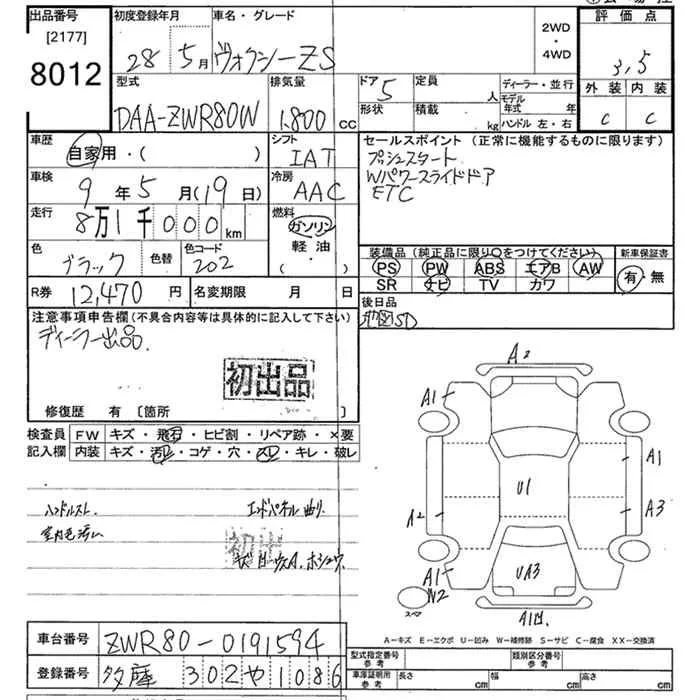 出品番号
[2177]
8012
初度登録年月
28 5月
車名・グレード
ヴォクシーZS
2WD
・
4WD
評価点
3,5
外装 内装
C C
型式
DAA-ZWR80W
排気量
1,800 cc
ドア
5
定員
人
形状
積載
kg
ディーラー・並行
モデル年式 年
ハンドル 左・右
車歴
自家用・( )
シフト
IAT
車検
9年5月(19日)
冷房
AAC
走行
8万1千000km
燃料
ガソリン
軽油・
( )
色
ブラック
色替
色コード
202
R券 12,470円
名変期限 月 日
セールスポイント(正常に機能するものに限ります)
プッシュスタート
Wパワースライドドア
ETC
装備品(純正品に限り○をつけてください)
PS PW ABS エアB AW
SR ナビ TV カワ
新車保証書
有・無
後日品
地図SD
注意事項申告欄(不具合内容等は具体的に記入して下さい)
ディーラー出品.
初出品
修復歴 有 [箇所 ]
検査員記入欄
FW キズ・飛石・ヒビ割・リペア跡・×要
内装 キズ・汚レ・コゲ・穴・スレ・キレ・破レ
ハンドルスレ.
エンドパネル曲り.
A2
A1
A1
U1
A2
A3
A1
W2
UA3
スペア
A-キズ E-エクボ U-凹み W-補修跡 S-サビ C-腐食 XX-交換済
車台番号 ZWR80-0191594
登録番号 多摩 302 や 1086
型式指定番号
参考
類別区分番号
参考
車庫証明
参考
長さ cm
幅 cm
高さ cm